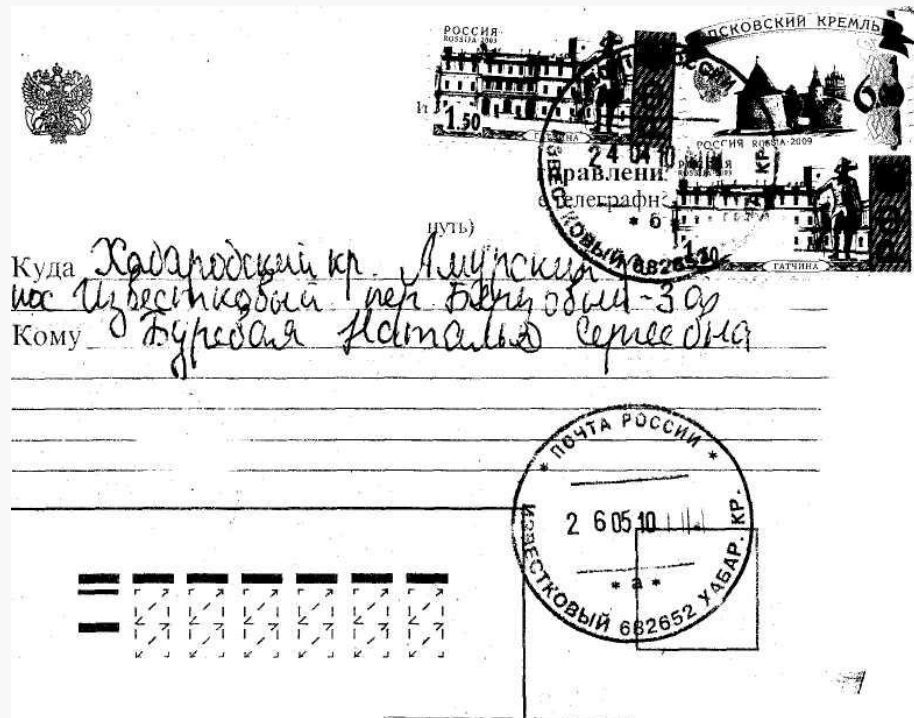 РОССИЯ
ROSSIJA·2003
1.50
ГАТЧИНА
ПСКОВСКИЙ КРЕМЛЬ
6
РОССИЯ ROSSIA·2009
24 04 10
ИЗВЕСТКОВЫЙ
* б *
ГАТЧИНА
путь)
Куда Хабаровский кр. Амурский
пос Известковый пер Березовый-3а
Кому Буревая Наталья Сергеевна
* ПОЧТА РОССИИ *
2 6 05 10
* а *
ИЗВЕСТКОВЫЙ 682652 ХАБАР. КР.